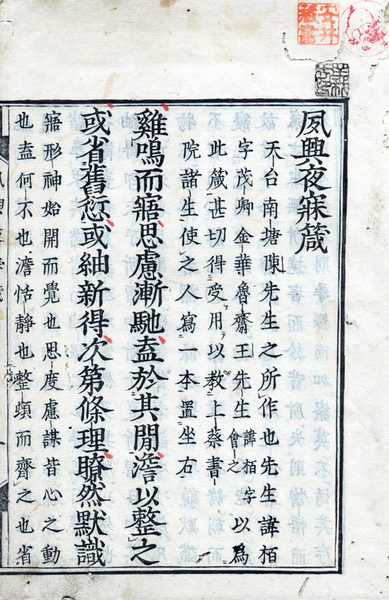 夙興夜寐箴
天台南塘陳先生之所作也先生諱栢
字茂卿金華魯齋王先生諱栢字會之以爲
此箴甚切得受用以敎上蔡書
院諸生使之人寫一本置坐右
雞鳴而寤思慮漸馳盍於其閒澹以整之
或省舊愆或紬新得次第條理瞭然默識
寤形神始開而覺也思度慮謀皆心之動
也盍何不也澹恬靜也整頓而齊之也省